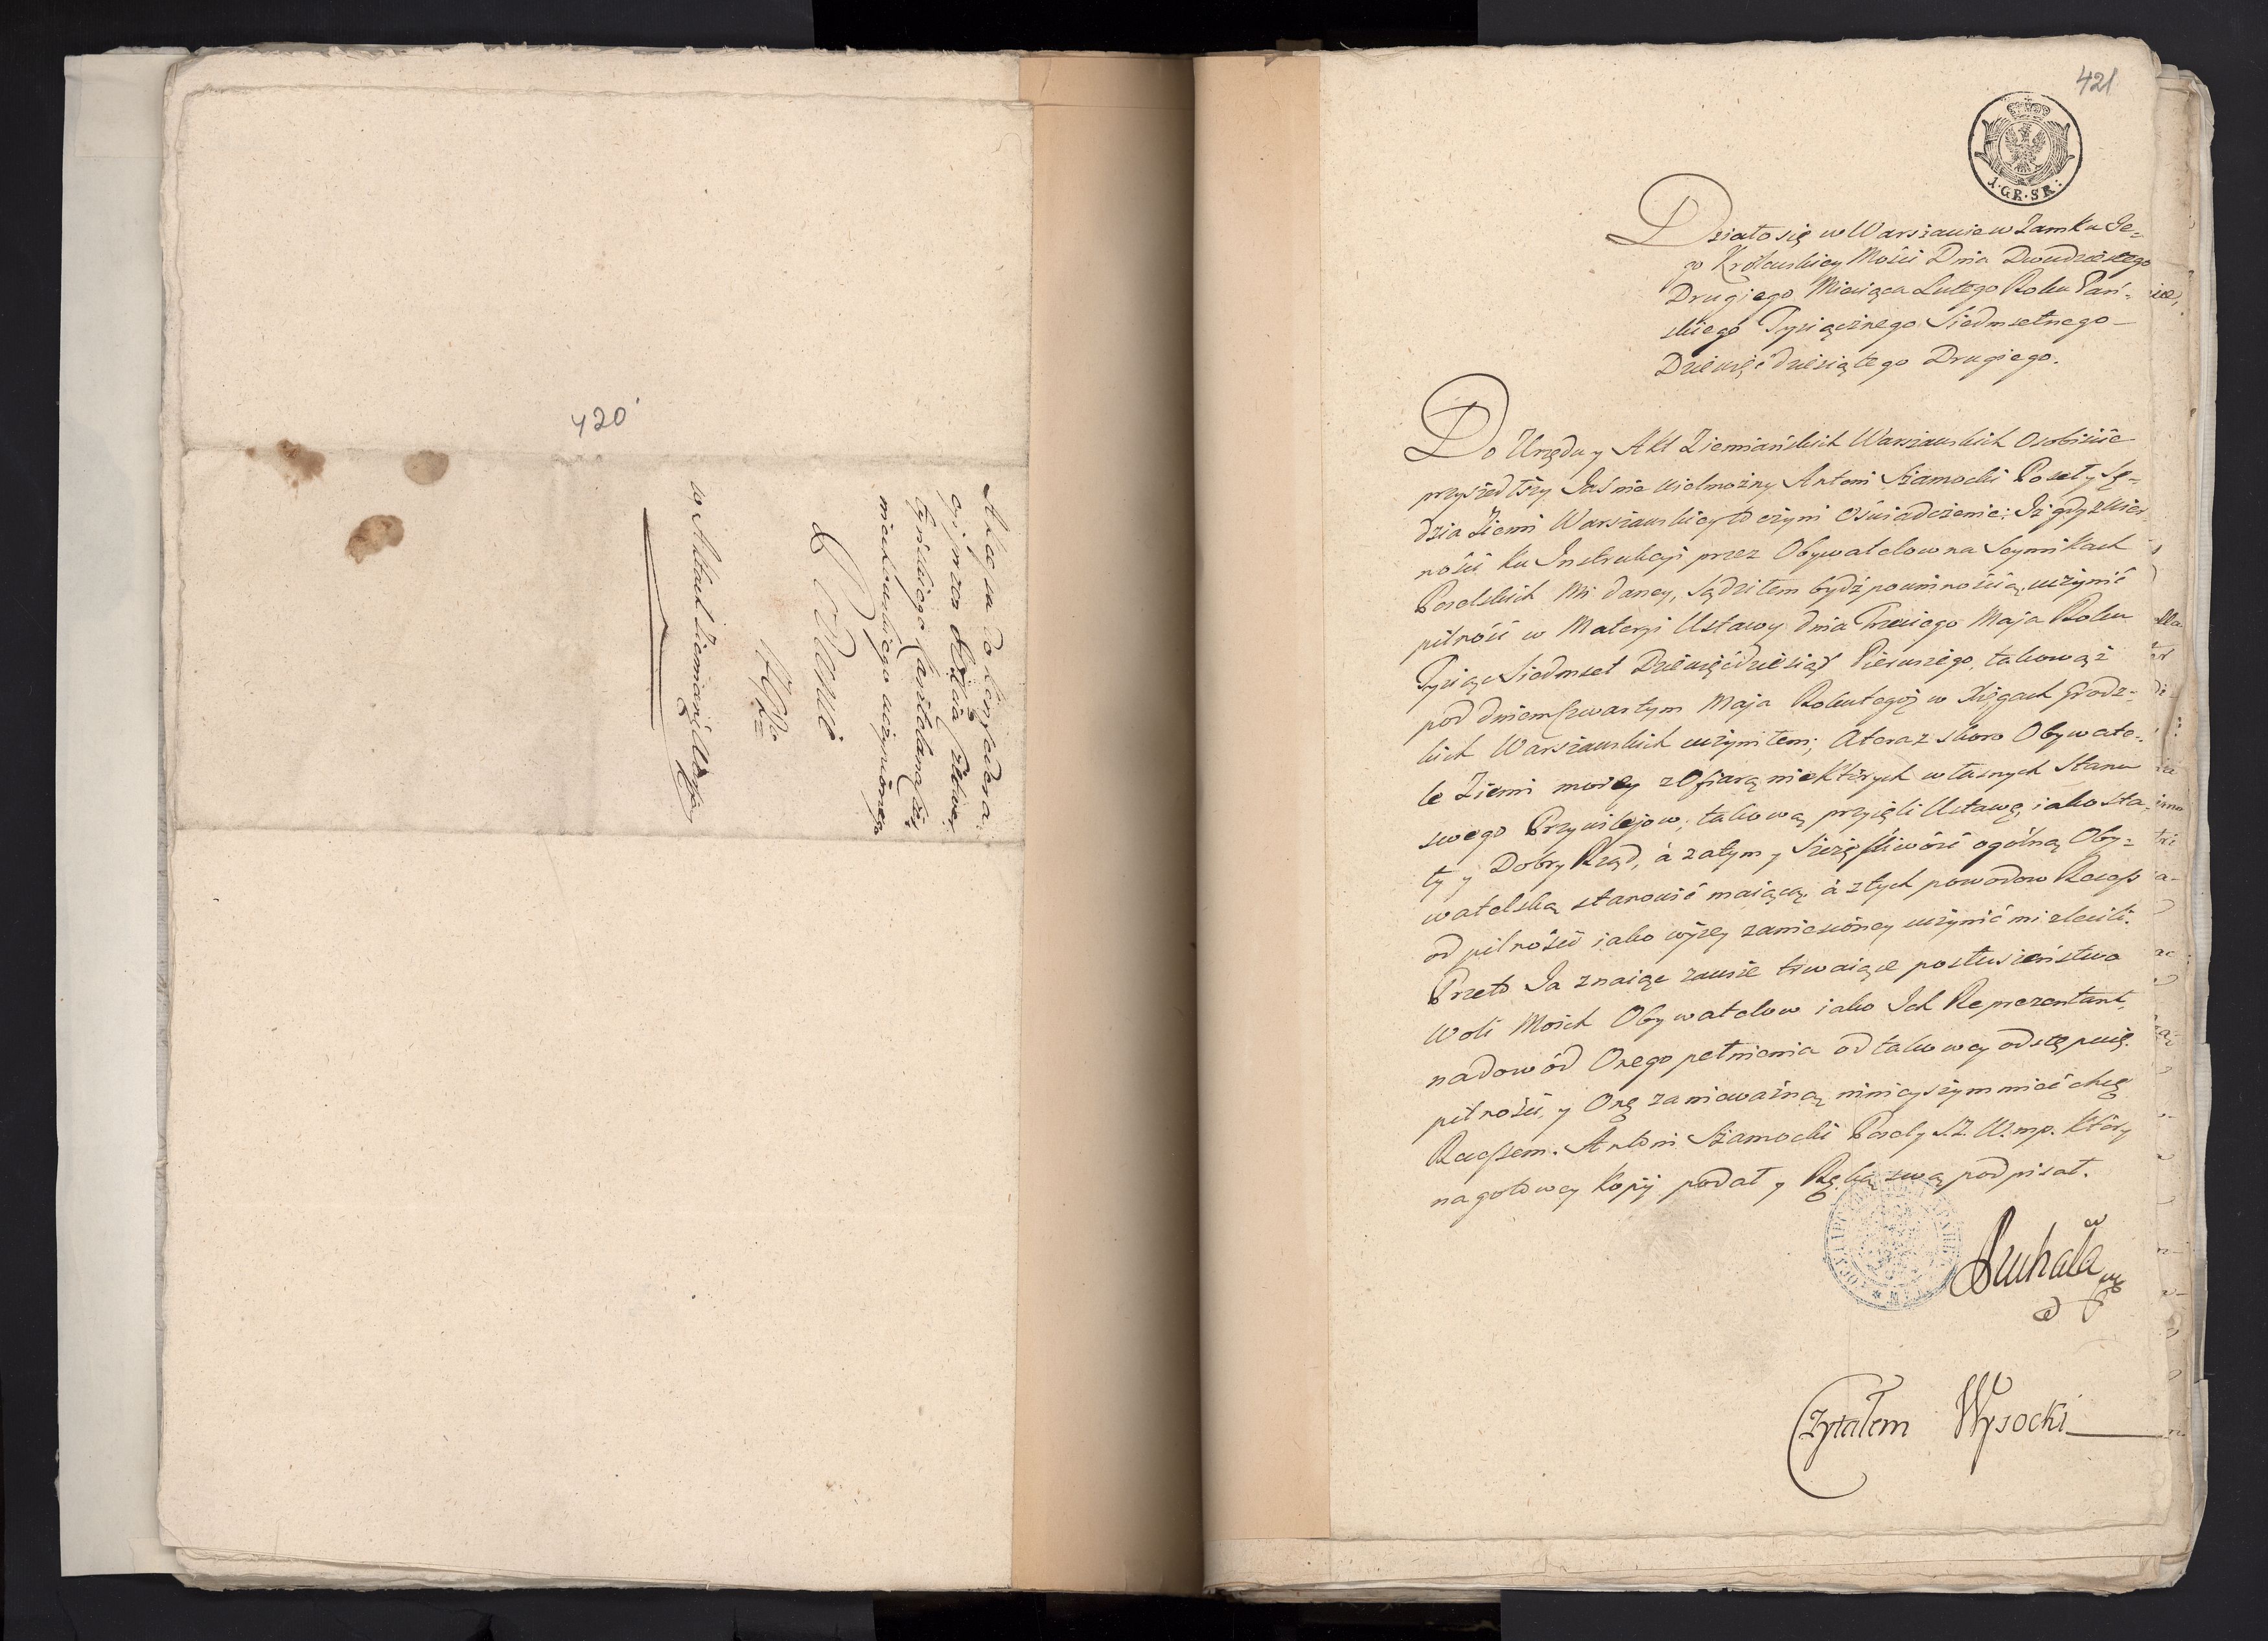 420
Akces do konfedera:
cyi przez
w Aktach Ziemiańs:
421
1·GR·SR:
Działo się w Warszawie w Zamku Je=
go Królewskiey Mości Dnia Dwudziestego
Drugiego Miesiąca Lutego Roku Pań=
skiego Tysiącznego Siedmsetnego
Dziewięćdziesiątego Drugiego.
Do Urzędu y Akt Ziemiańskich Warszawskich Osobiście
przyszedłszy Jaśnie Wielmożny Antoni Szamocki Poseł y Sę=
dzia Ziemi Warszawskiey to czyni Oświadczenie: Iż gdy z Wier
ności ku Instrukcyi przez Obywatelow na Seymikach
Poselskich Mi daney, sądziłem bydź powinnością, uczynić
pilność w Materyi Ustawy dnia Trzeciego Maja Roku
Tysiąc Siedmset Dziewięćdziesiąt Pierwszego, takowąż
pod dniem Czwartym Maja Roku tegoż w Xięgach Grodz=
kich Warszawskich uczyniłem; A teraz skoro Obywate=
le Ziemi moiey z Ofiarą niektórych własnych Stanu
swego Przywilejow, takową przyięli Ustawę, iako sta=
ły y Dobry Rząd, à zatym y Szczęśliwość ogólną Oby=
watelską stanowić maiącą, à z tych powodow Recess
od pilności iako wyżey zaniesioney uczynić mi zlecili.
Przeto Ja znaiąc zawsze trwaiące posłuszeństwo
Woli Moich Obywatelow iako Ich Reprezentant,
na dowód Onego pełnienia od takowey odstępuię
pilności, y Onę za nieważną ninieyszym mieć chcę
Recessem. Antoni Szamocki Poseł y S.Z.W.mp. Który
na gotowey kopij podał y Ręką swą podpisał.
Czytałem Wysocki